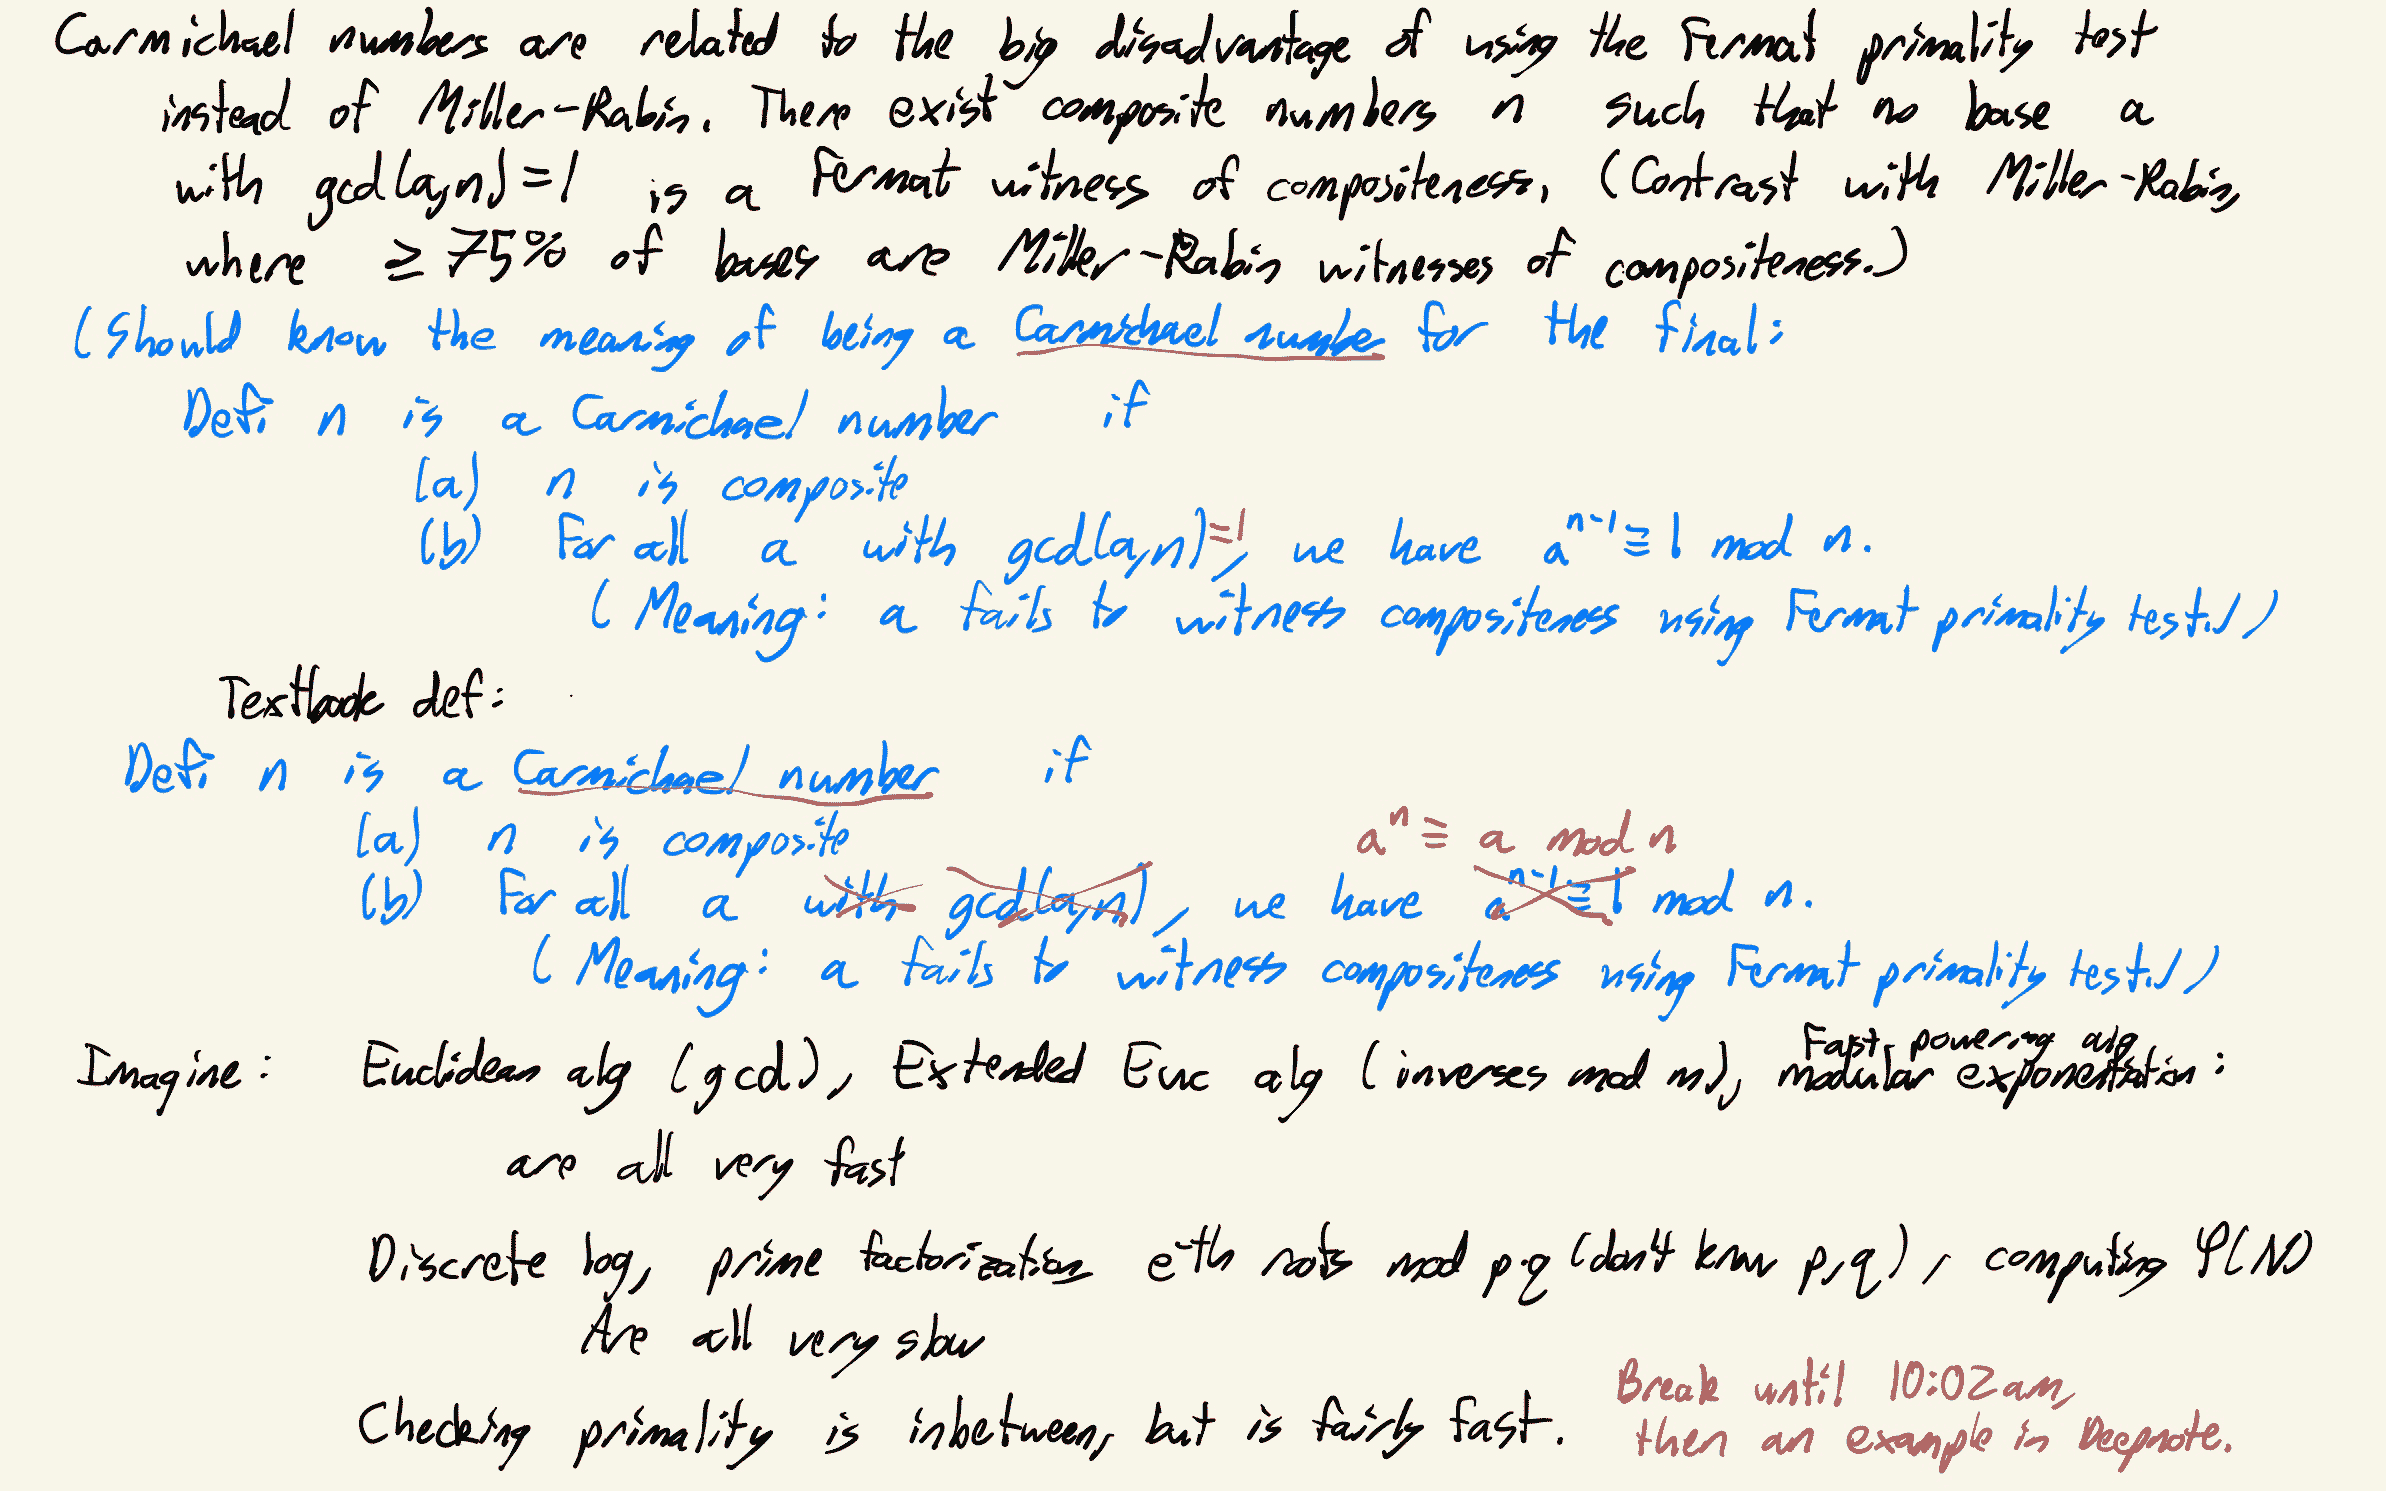 Carmichael numbers are related to the big disadvantage of using the Fermat primality test
instead of Miller-Rabin. There exist composite numbers n such that no base a
with gcd(a,n)=1 is a Fermat witness of compositeness. (Contrast with Miller-Rabin,
where ≥ 75% of bases are Miller-Rabin witnesses of compositeness.)
(Should know the meaning of being a Carmichael number for the final:
Def: n is a Carmichael number if
(a) n is composite
(b) For all a with gcd(a,n)=1, we have a^{n-1} ≡ 1 mod n.
(Meaning: a fails to witness compositeness using Fermat primality test.))
Textbook def:
Def: n is a Carmichael number if
(a) n is composite
a^n ≡ a mod n
(b) For all a with gcd(a,n), we have a^{n-1} ≡ 1 mod n.
(Meaning: a fails to witness compositeness using Fermat primality test.))
Fast-powering alg
Imagine: Euclidean alg (gcd), Extended Euc alg (inverses mod m), modular exponentiation:
are all very fast
Discrete log, prime factorization e-th roots mod p·q (don't know p,q), computing φ(N)
Are all very slow
Checking primality is inbetween, but is fairly fast.
Break until 10:02am,
then an example in Deepnote.